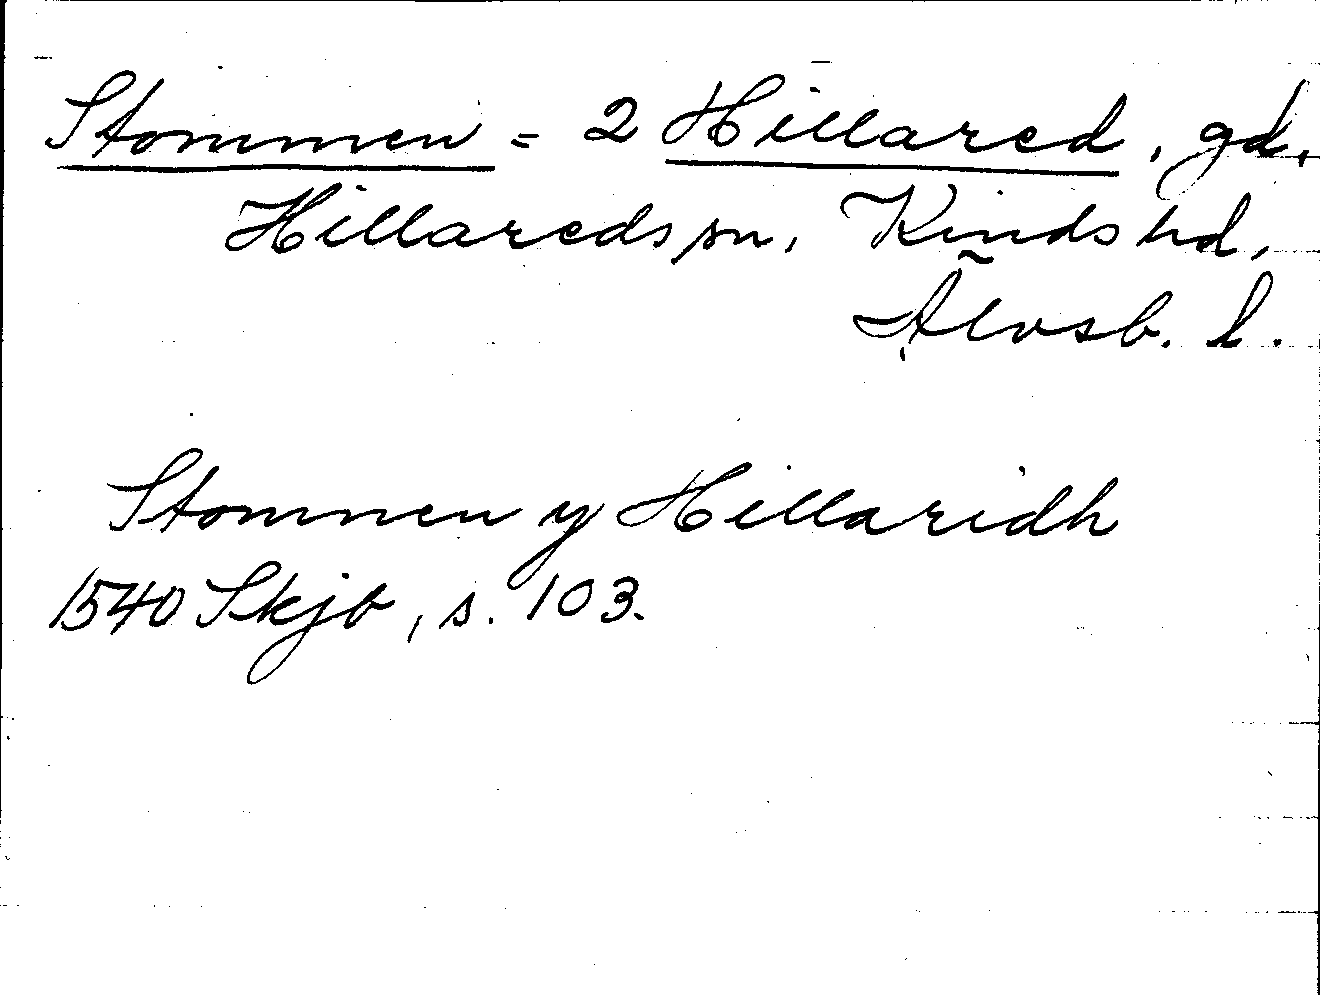 Stommen = 2 Hillared, gd,
Hillareds sn, Kinds hd,
Älvsb. l.
Stomnen y Hillaridh
1540 Skjb, s. 103.